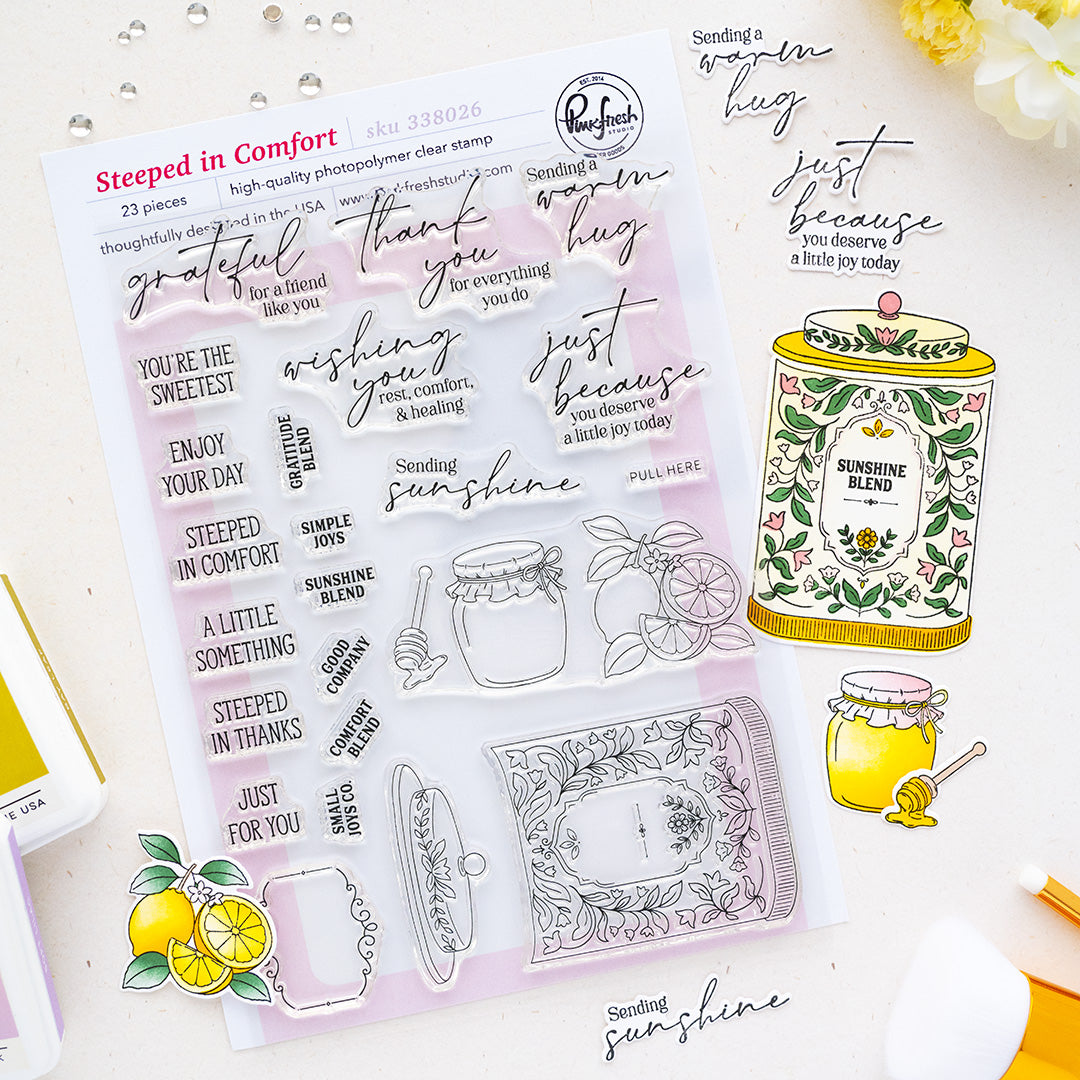 Steeped in Comfort
sku 338026
23 pieces
high-quality photopolymer clear stamp
thoughtfully designed in the USA
EST. 2014
Pinkfresh
STUDIO
grateful
for a friend
like you
thank
you
for everything
you do
Sending a
warm
hug
YOU'RE THE
SWEETEST
wishing
you
rest, comfort,
& healing
just
because
you deserve
a little joy today
ENJOY
YOUR DAY
GRATITUDE
BLEND
Sending
sunshine
PULL HERE
STEEPED
IN COMFORT
SIMPLE
JOYS
SUNSHINE
BLEND
A LITTLE
SOMETHING
GOOD
COMPANY
STEEPED
IN THANKS
COMFORT
BLEND
JUST
FOR YOU
SMALL
JOYS CO.
Sending a
warm
hug
just
because
you deserve
a little joy today
SUNSHINE
BLEND
Sending
sunshine
USA